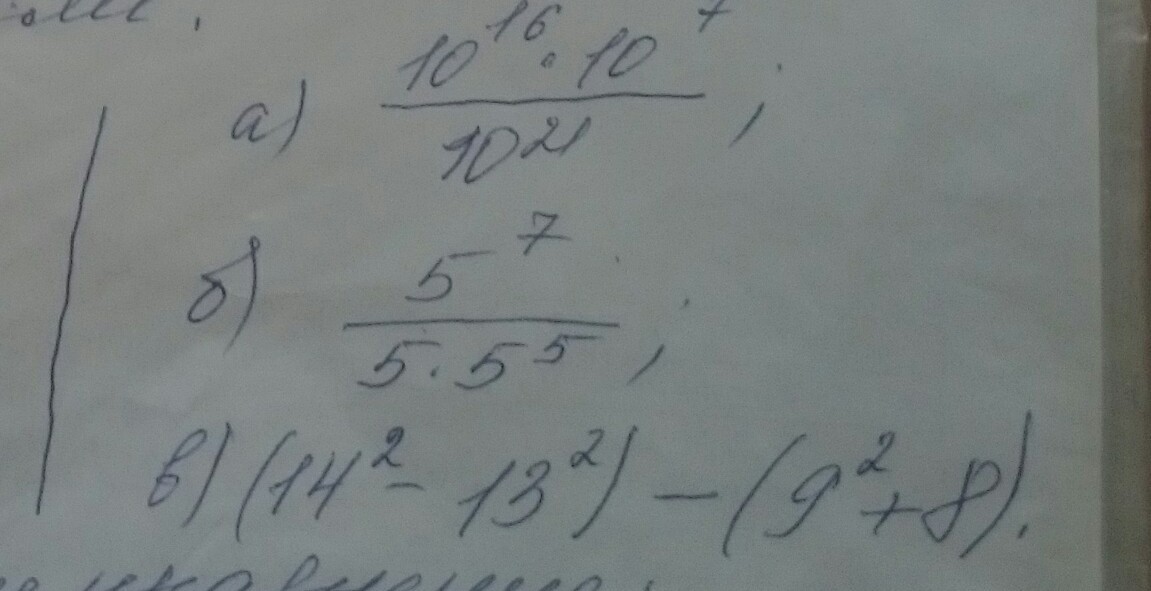 а) 10^16 · 10^7 / 10^21 ;
б) 5^7 / 5 · 5^5 ;
в) (14^2 - 13^2) - (9^2 + 8).